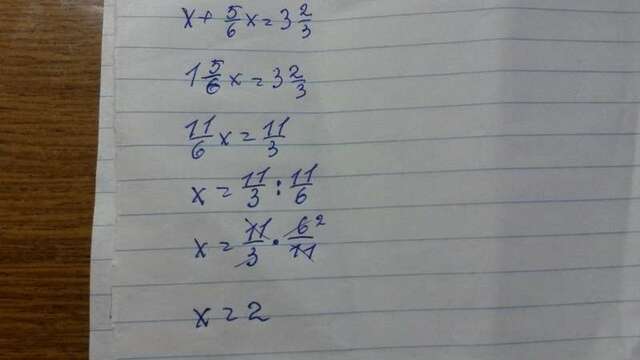 x + 5/6 x = 3 2/3
1 5/6 x = 3 2/3
11/6 x = 11/3
x = 11/3 : 11/6
x = 11/3 · 6/11 2
x = 2